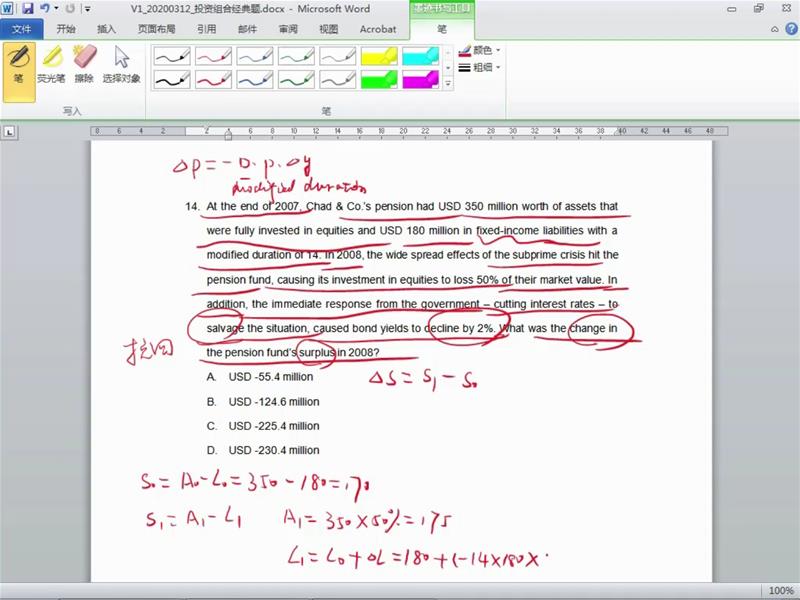 V1_20200312_投资组合经典题.docx - Microsoft Word
文件 开始 插入 页面布局 引用 邮件 审阅 视图 Acrobat 笔
笔 荧光笔 擦除 选择对象
颜色
粗细
写入 笔
8 6 4 2 2 4 6 8 10 12 14 16 18 20 22 24 26 28 30 32 34 36 38 40 42 44 46 48
ΔP = - D. P. Δy
modified duration
14. At the end of 2007, Chad & Co.'s pension had USD 350 million worth of assets that
were fully invested in equities and USD 180 million in fixed-income liabilities with a
modified duration of 14. In 2008, the wide spread effects of the subprime crisis hit the
pension fund, causing its investment in equities to loss 50% of their market value. In
addition, the immediate response from the government – cutting interest rates – to
salvage the situation, caused bond yields to decline by 2%. What was the change in
挽回
the pension fund's surplus in 2008?
A. USD -55.4 million
ΔS = S₁ - S₀
B. USD -124.6 million
C. USD -225.4 million
D. USD -230.4 million
S₀ = A₀ - L₀ = 350 - 180 = 170
S₁ = A₁ - L₁ A₁ = 350 × 50% = 175
L₁ = L₀ + ΔL = 180 + (-14 × 180 ×
100%